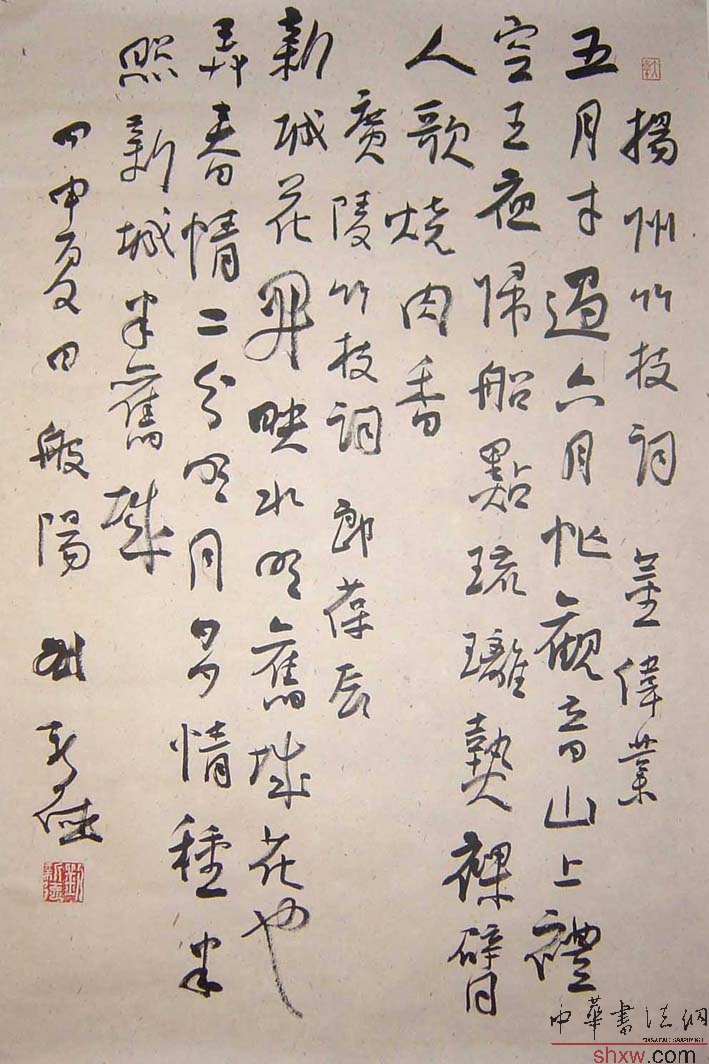 揚州竹枝詞 董偉業
五月才過六月忙觀音山上禮
空王夜歸船點琉璃裸臂
人歌燒肉香
廣陵竹枝詞 郎葆辰
新城花開映水明舊城花也
弄春情二分明月多情種半
照新城半舊城
甲申夏日 般陽 劉新德
中華書法網
shxw.com